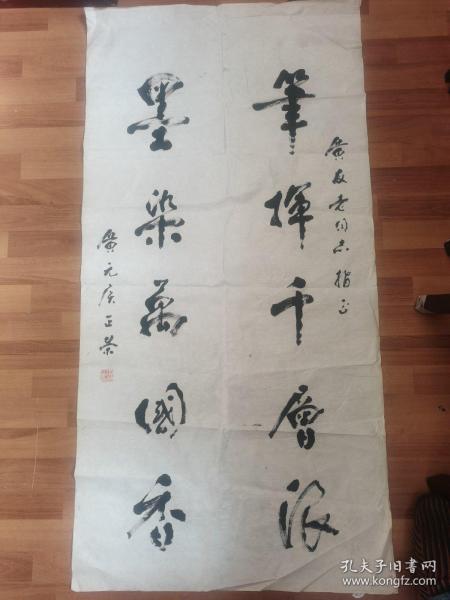 廣友老同志指正
筆揮千層浪
墨染萬國香
廣元侯正榮
孔夫子旧书网
www.kongfz.com